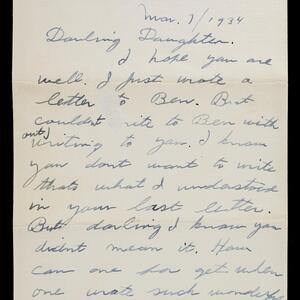 Mar. 7/1934
Darling Daughter.
I hope you are
well. I just wrote a
letter to Ben. But
couldnt rite to Ben with
out
writing to you. I know
you dont want to write
thats what I understood
in your last letter.
But darling I know you
didnt mean it. How
can one for get when
one wrote such wonderful